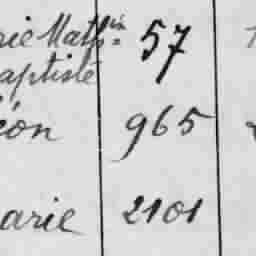 rie Mathin= 57
aptiste
éon 965
arie 2101